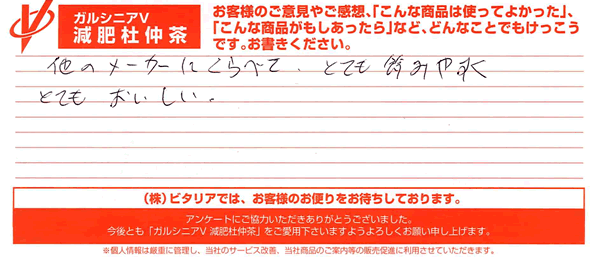 ガルシニアV
減肥杜仲茶
お客様のご意見やご感想、「こんな商品は使ってよかった」、
「こんな商品がもしあったら」など、どんなことでもけっこう
です。お書きください。
他のメーカーにくらべて、とても飲みやすく
とても おいしい。
(株)ビタリアでは、お客様のお便りをお待ちしております。
アンケートにご協力いただきありがとうございました。
今後とも「ガルシニアV 減肥杜仲茶」をご愛用下さいますようよろしくお願い申し上げます。
※個人情報は厳重に管理し、当社のサービス改善、当社商品のご案内等の販売促進に利用させていただきます。